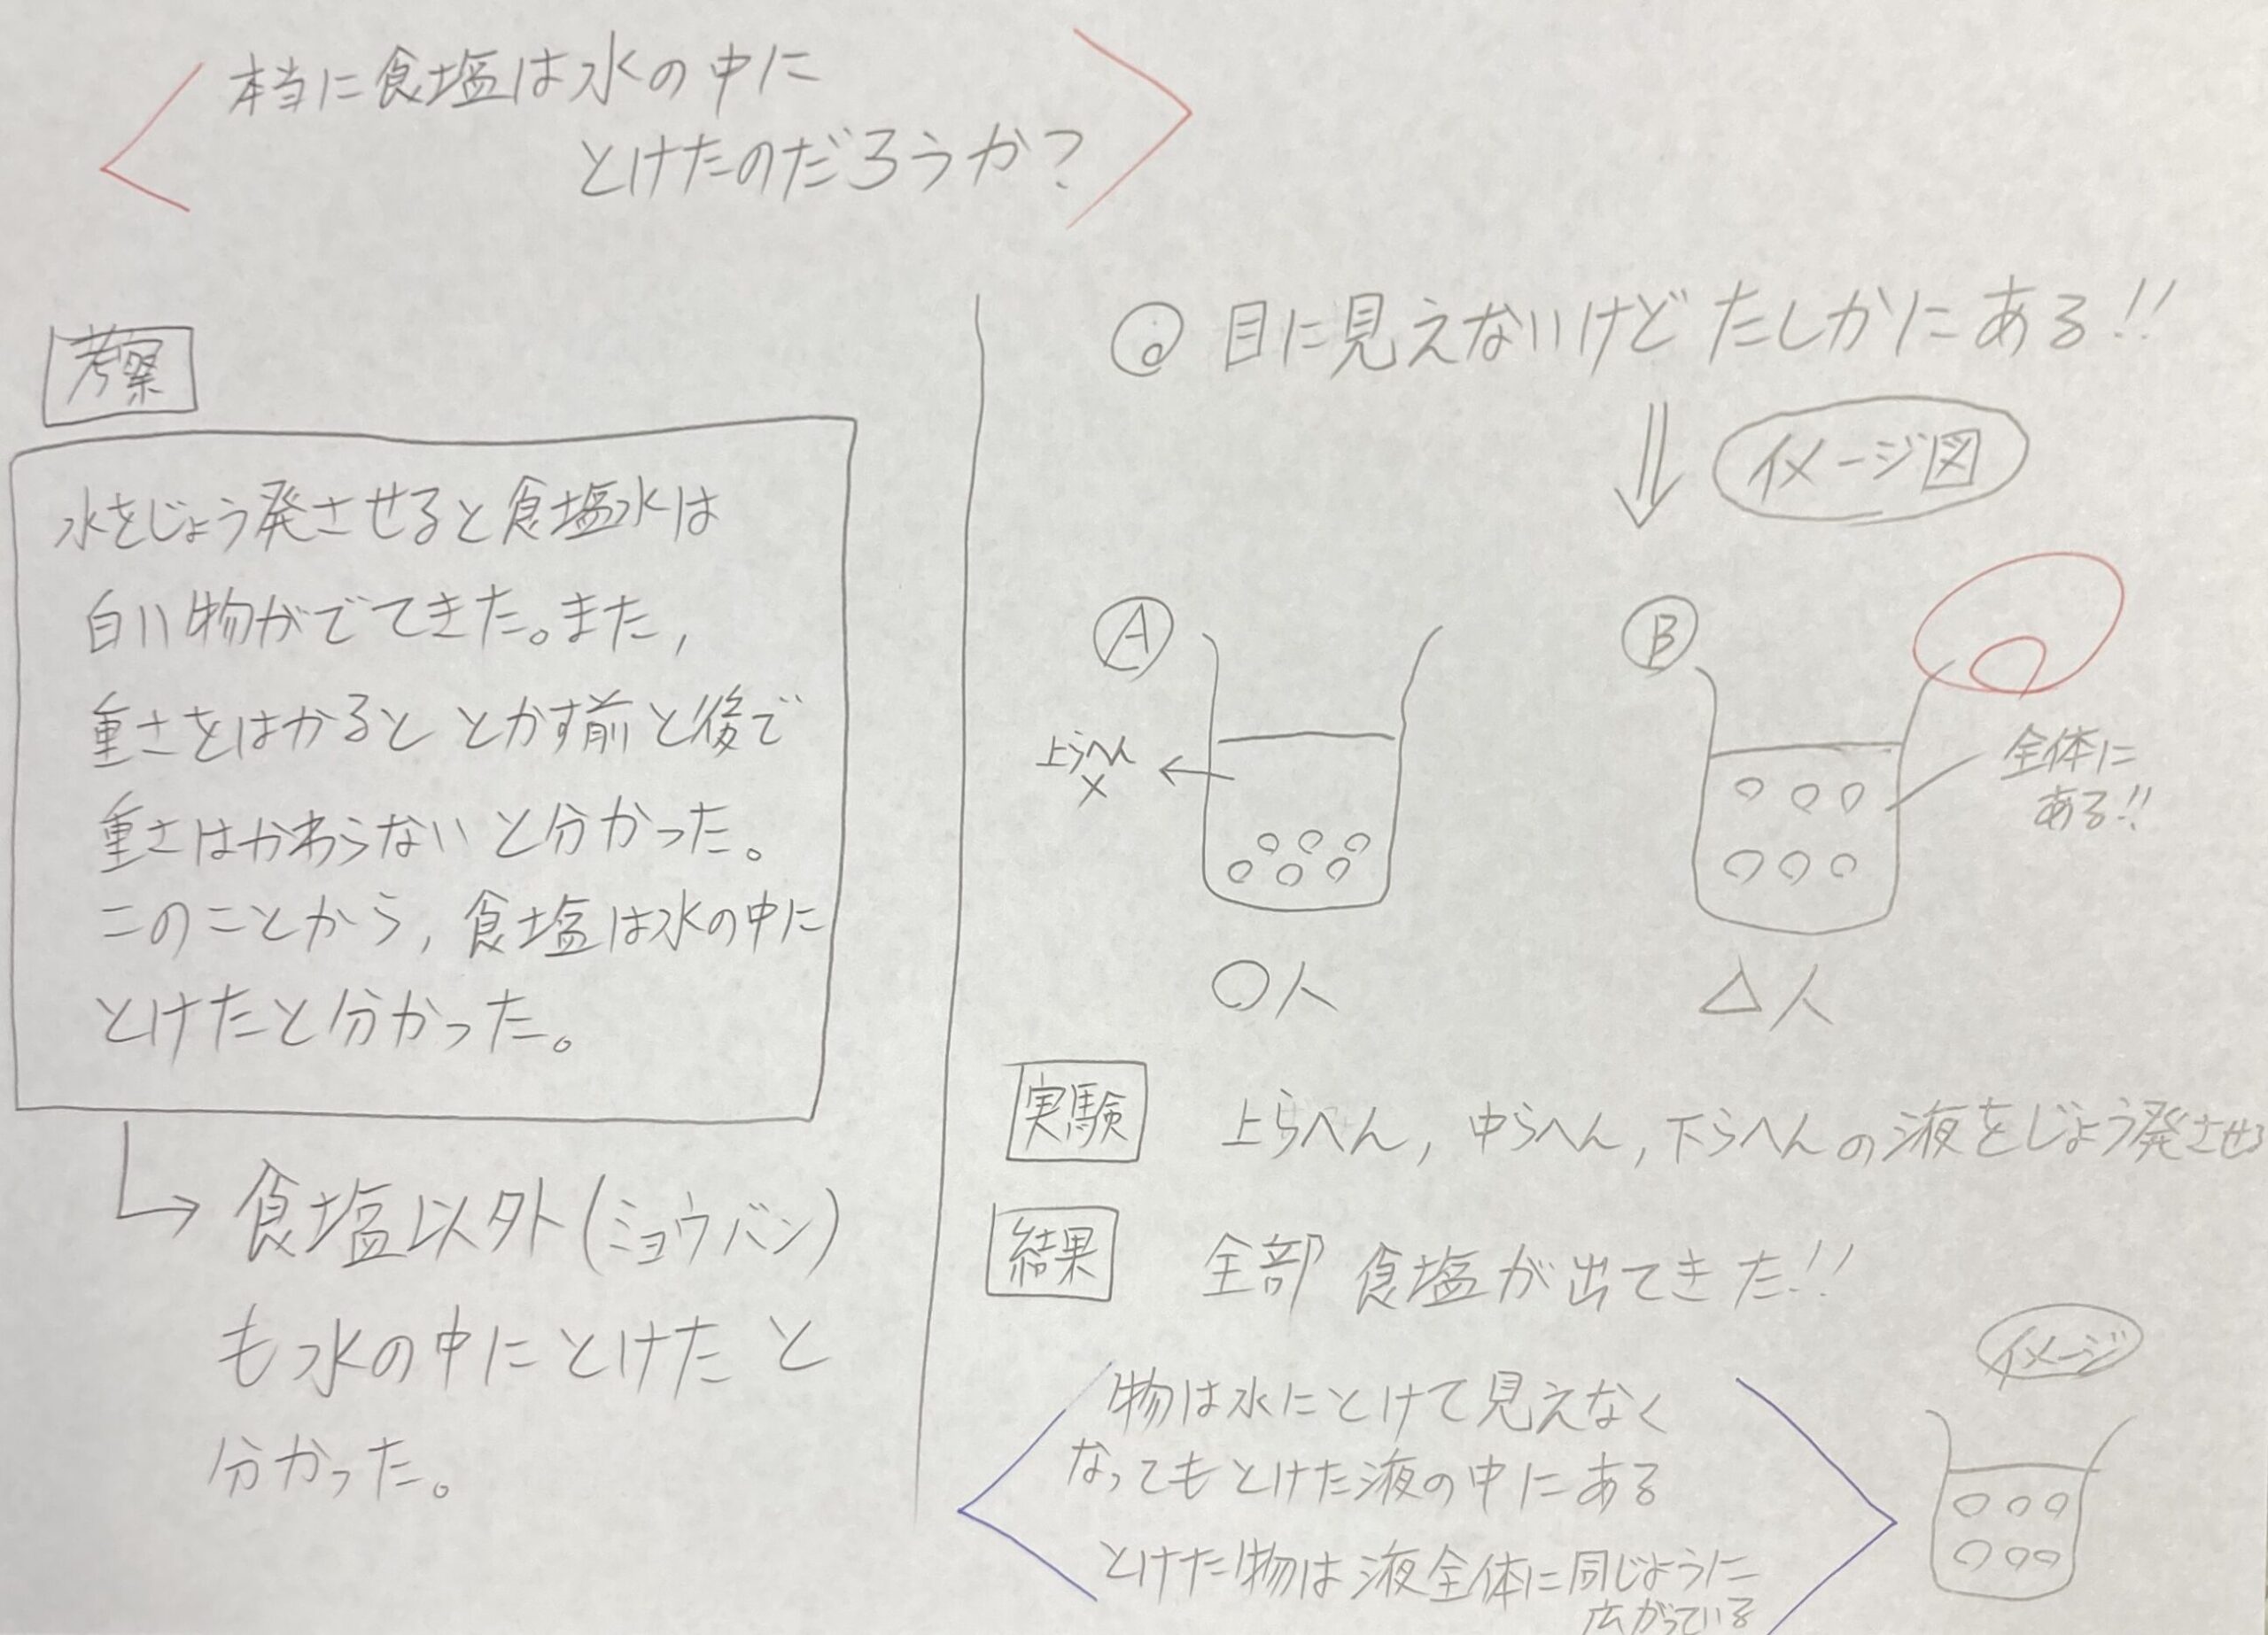 本当に食塩は水の中に
とけたのだろうか?
考察
水をじょう発させると食塩水は
白い物がでてきた。また,
重さをはかると とかす前と後で
重さはかわらないと分かった。
このことから, 食塩は水の中に
とけたと分かった。
食塩以外(ミョウバン)
も水の中にとけたと
分かった。
目に見えないけど たしかにある!!
イメージ図
A
上らへん
×
○人
B
全体に
ある!!
△人
実験 上らへん, 中らへん, 下らへんの液をじょう発させる
結果 全部 食塩が出てきた!!
物は水にとけて見えなく
なってもとけた液の中にある
とけた物は液全体に同じように
広がっている
イメージ